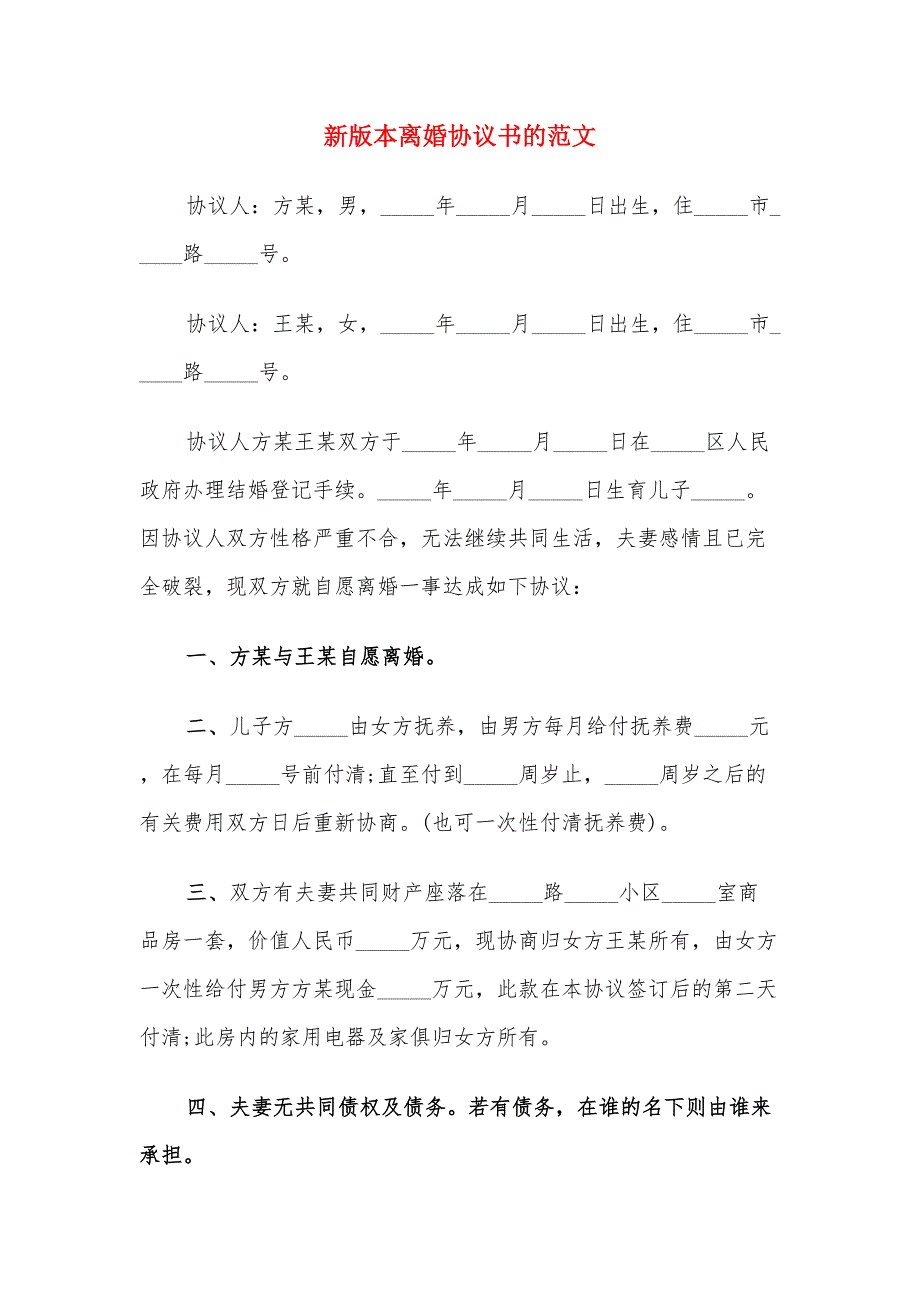 新版本离婚协议书的范文
协议人：方某，男，_____年_____月_____日出生，住_____市_
____路_____号。
协议人：王某，女，_____年_____月_____日出生，住_____市_
____路_____号。
协议人方某王某双方于_____年_____月_____日在_____区人民
政府办理结婚登记手续。_____年_____月_____日生育儿子_____。
因协议人双方性格严重不合，无法继续共同生活，夫妻感情且已完
全破裂，现双方就自愿离婚一事达成如下协议：
一、方某与王某自愿离婚。
二、儿子方_____由女方抚养，由男方每月给付抚养费_____元
，在每月_____号前付清;直至付到_____周岁止，_____周岁之后的
有关费用双方日后重新协商。(也可一次性付清抚养费)。
三、双方有夫妻共同财产座落在_____路_____小区_____室商
品房一套，价值人民币_____万元，现协商归女方王某所有，由女方
一次性给付男方方某现金_____万元，此款在本协议签订后的第二天
付清;此房内的家用电器及家俱归女方所有。
四、夫妻无共同债权及债务。若有债务，在谁的名下则由谁来
承担。